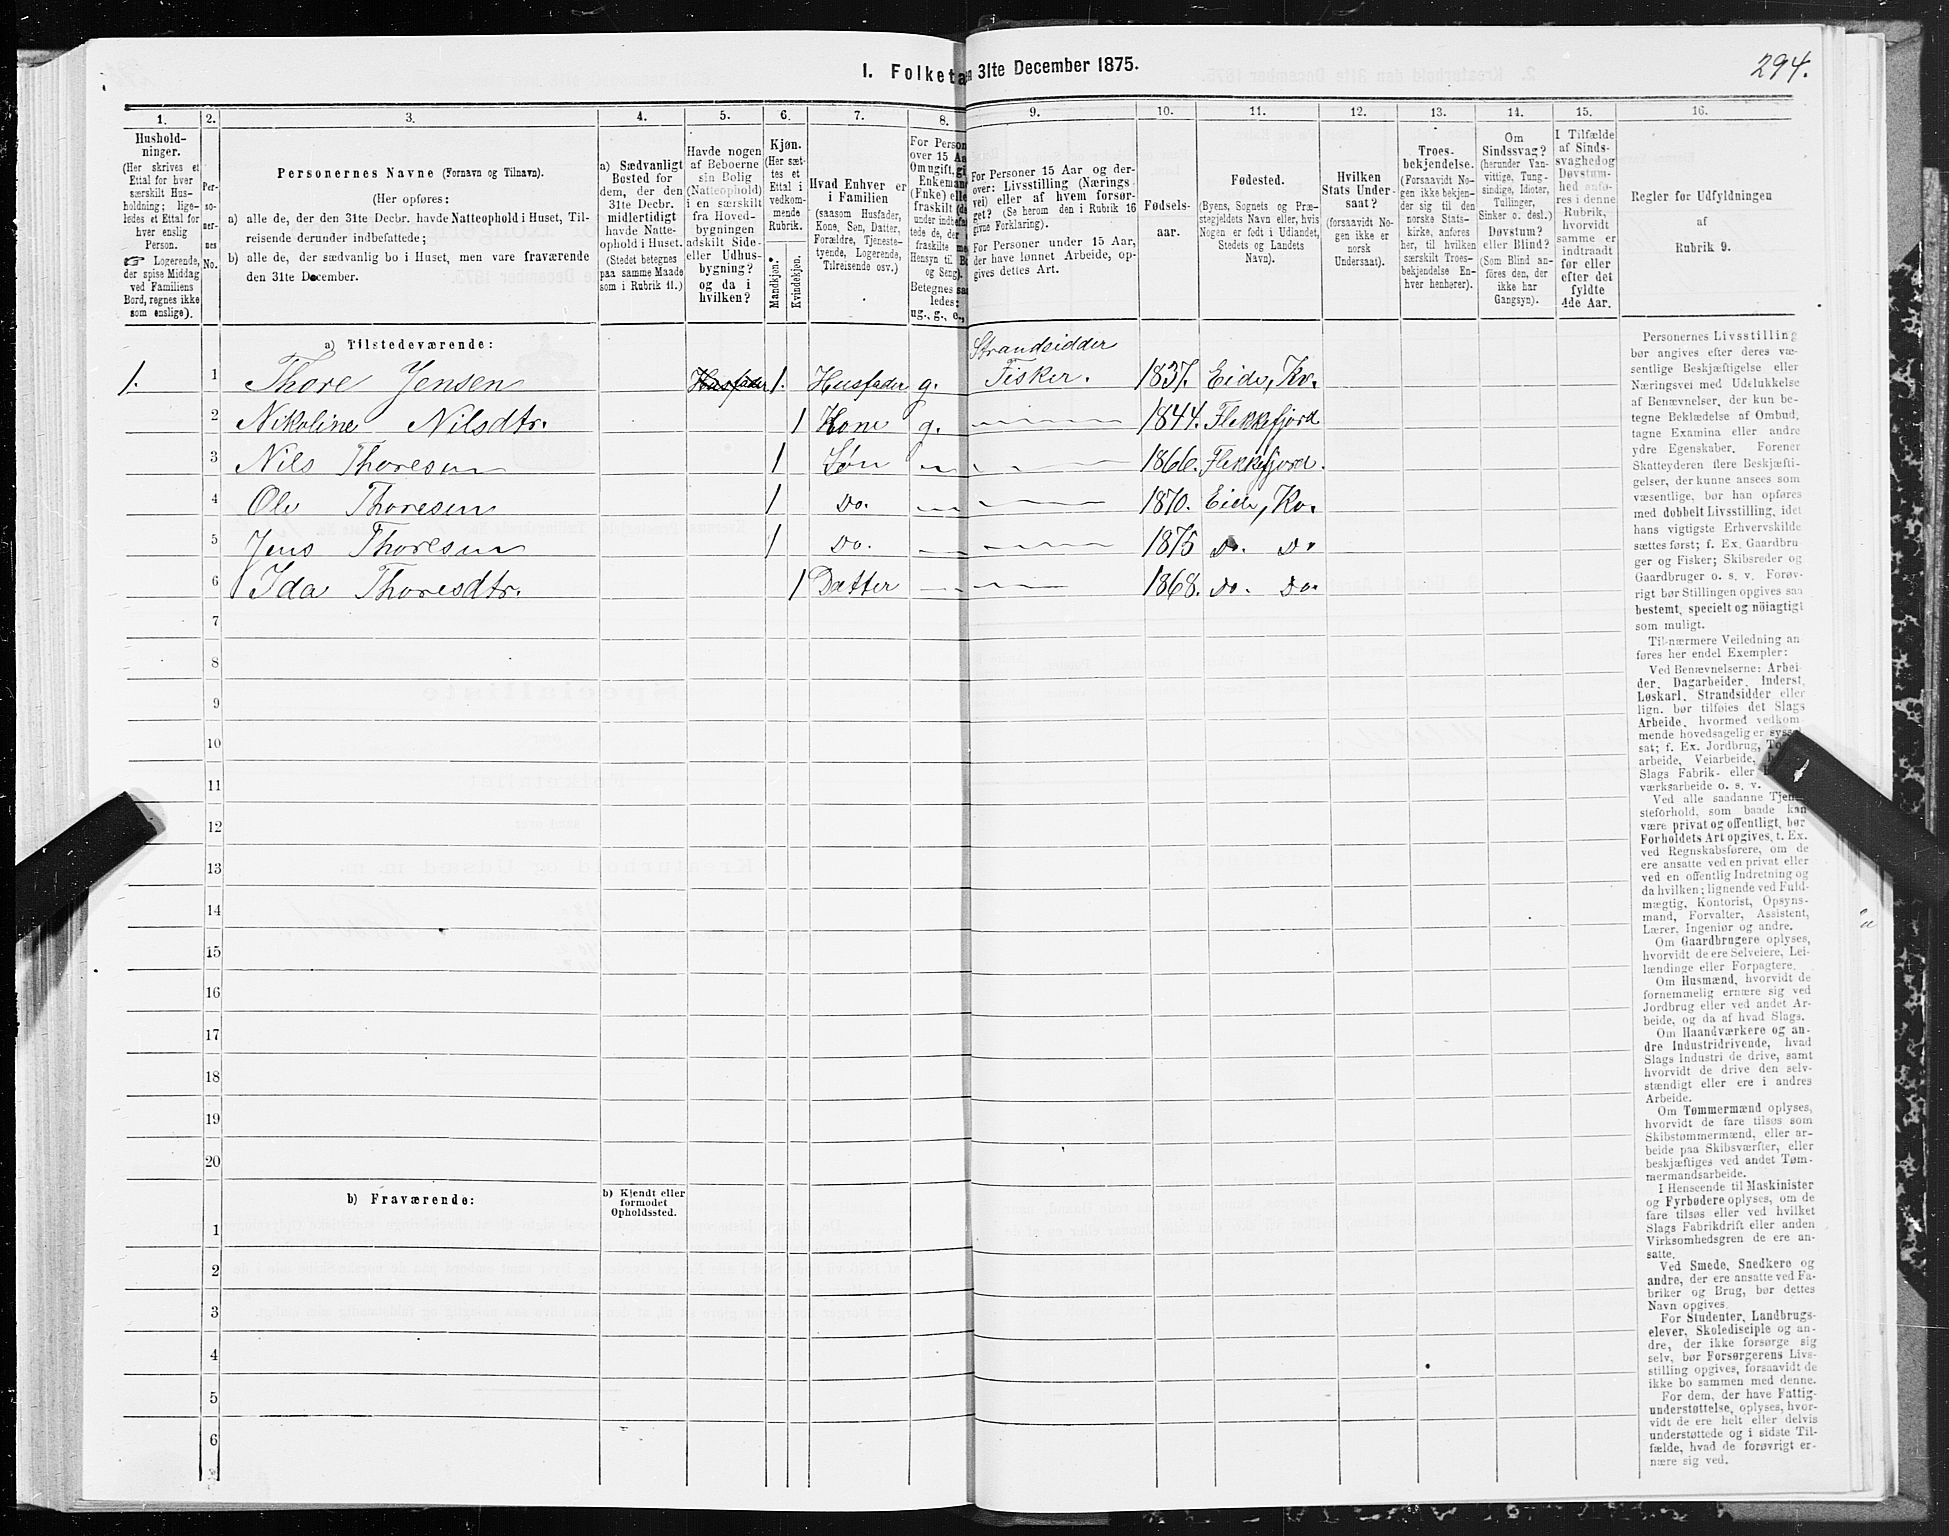 I. Folketa
n 31te December 1875.
294.
1.
2.
3.
4.
5.
6.
7.
8.
9.
10.
11.
12.
13.
14.
15.
16.
Hushold-
ninger.
(Her skrives et
Ettal for hver
særskilt Hus-
holdning; lige-
ledes et Ettal for
hver enslig
Person.
☞ Logerende,
der spise Middag
ved Familiens
Bord, regnes ikke
som enslige).
Per-
so-
ner-
nes
No.
Personernes Navne (Fornavn og Tilnavn).
(Her opføres:
a) alle de, der den 31te Decbr. havde Natteophold i Huset, Til-
reisende derunder indbefattede;
b) alle de, der sædvanlig bo i Huset, men vare fraværende
den 31te December.
a) Sædvanligt
Bosted for
dem, der den
31te Decbr.
midlertidigt
havde Natte-
ophold i Huset.
(Stedet betegnes
paa samme Maade
som i Rubrik 11.)
Havde nogen
af Beboerne
sin Bolig
(Natteophold)
i en særskilt
fra Hoved-
bygningen
adskilt Side-
eller Udhus-
bygning?
og da i
hvilken?
Kjøn.
(Her sæt-
tes et
Ettal i
vedkom-
mende
Rubrik.
Mandkjøn.
Kvindekjøn.
Hvad Enhver er
i Familien
(saasom Husfader,
Kone, Søn, Datter,
Forældre, Tjeneste-
tyende, Logerende,
Tilreisende osv.)
For Person
over 15 Aa
Om ugift, gi
Enkeman
(Enke) elle
fraskilt (d
under indbefat
tede de, der
fraskilte me
Hensyn til B
og Seng).
Betegnes saa
ledes:
ug., g., e.,
For Personer 15 Aar og der-
over: Livsstilling (Nærings
vei) eller af hvem forsør-
get? (Se herom den i Rubrik 16
givne Forklaring).
For Personer under 15 Aar,
der have lønnet Arbeide, op-
gives dettes Art.
Fødsels-
aar.
Fødested.
(Byens, Sognets og Præ-
stegjeldets Navn eller, hvis
Nogen er født i Udlandet,
Stedets og Landets
Navn).
Hvilken
Stats Under-
saat?
(forsaavidt No-
gen ikke er
norsk
Undersaat).
Troes-
bekjendelse.
(Forsaavidt No-
gen ikke bekjen-
der sig til den
norske Stats-
kirke, anføres
her, til hvilken
særskilt Troes-
bekjendelse En-
hver henhører).
Om
Sindssvag?
(herunder Van-
vittige, Tung-
sindige, Idioter,
Tullinger,
Sinker o. desl.)
Døvstum?
eller Blind?
(Som Blind an-
føres den, der
ikke har
Gangsyn).
I Tilfælde
af Sinds-
svaghed og
Døvstum-
hed anfø-
res i denne
Rubrik,
hvorvidt
samme er
indtraadt
før eller
efter det
fyldte
4de Aar.
Regler for Udfyldningen
af
Rubrik 9.
a) Tilstedeværende:
Strandsidder
1. 1 Thore Jensen Husfader 1. Husfader g. Fisker. 1837. Eide, Kv.
2 Nikoline Nilsdtr. 1 Kone g. 1844. Flekkefjord
3 Nils Thoresen 1 Søn 1866. Flekkefjord.
4 Ole Thoresen 1 Do. 1870. Eide, Kv.
5 Jens Thoresen 1 Do. 1875 Do. Do
6 Ida Thoresdtr. 1 Datter 1868. Do. Do.
7
8
9
10
11
12
13
14
15
16
17
18
19
20
b) Fraværende:
b) Kjendt eller
formodet
Opholdssted.
1
2
3
4
5
6
Personernes Livsstilling
bør angives efter deres væ-
sentlige Beskjæftigelse eller
Næringsvei med Udelukkelse
af Benævnelser, der kun be-
tegne Beklædelse af Ombud,
tagne Examina eller andre
ydre Egenskaber. Forener
Skatteyderen flere Beskjæfti-
gelser, der kunne ansees som
væsentlige, bør han opføres
med dobbelt Livsstilling, idet
hans vigtigste Erhvervskilde
sættes først; f. Ex. Gaardbru-
ger og Fisker; Skibsreder og
Gaardbruger o. s. v. Forøv-
rigt bør Stillingen opgives saa
bestemt, specielt og nöiagtigt
som muligt.
Til nærmere Veiledning an-
føres her endel Exempler:
Ved Benævnelserne: Arbei-
der, Dagarbeider, Inderst,
Løskarl, Strandsidder eller
lign. bør tilføies det Slags
Arbeide, hvormed vedkom-
mende hovedsagelig er syssel
sat; f. Ex. Jordbrug, To
arbeide, Veiarbeide,
Slags Fabrik- eller
værksarbeide o. s. v.
Ved alle saadanne Tjene
steforhold, som baade kan
være privat og offentligt, bør
Forholdets Art opgives, t. Ex.
ved Regnskabsførere, om de
ere ansatte ved en privat eller
ved en offentlig Indretning og
da hvilken; lignende ved Fuld-
mægtig, Kontorist, Opsyns-
mand, Forvalter, Assistent,
Lærer, Ingeniør og andre.
Om Gaardbrugere oplyses,
hvorvidt de ere Selveiere, Lei-
lændinge eller Forpagtere.
Om Husmænd, hvorvidt de
fornemmelig ernære sig ved
Jordbrug eller ved andet Ar-
beide, og da af hvad Slags.
Om Haandværkere og an-
dre Industridrivende, hvad
Slags Industri de drive, samt
hvorvidt de drive den selv-
stændigt eller ere i andres
Arbeide.
Om Tømmermænd oplyses,
hvorvidt de fare tilsøs som
Skibstømmermænd, eller ar-
beide paa Skibsværfter, eller
beskjæftiges ved andet Tøm-
mermandsarbeide.
I Henseende til Maskinister
og Fyrbødere oplyses, om de
fare tilsøs eller ved hvilket
Slags Fabrikdrift eller anden
Virksomhedsgren de ere an-
satte.
Ved Smede, Snedkere og
andre, der ere ansatte ved Fa-
briker og Brug, bør dettes
Navn opgives.
For Studenter, Landbrugs-
elever, Skoledisciple og an-
dre, der ikke forsørge sig
selv, bør Forsørgerens Livs-
stilling opgives, forsaavidt de
ikke bo sammen med denne.
For dem, der have Fattig-
understøttelse, oplyses, hvor-
vidt de ere helt eller delvis
understøttede og i sidste Til-
fælde, hvad de forøvrigt er-
nære sig ved.